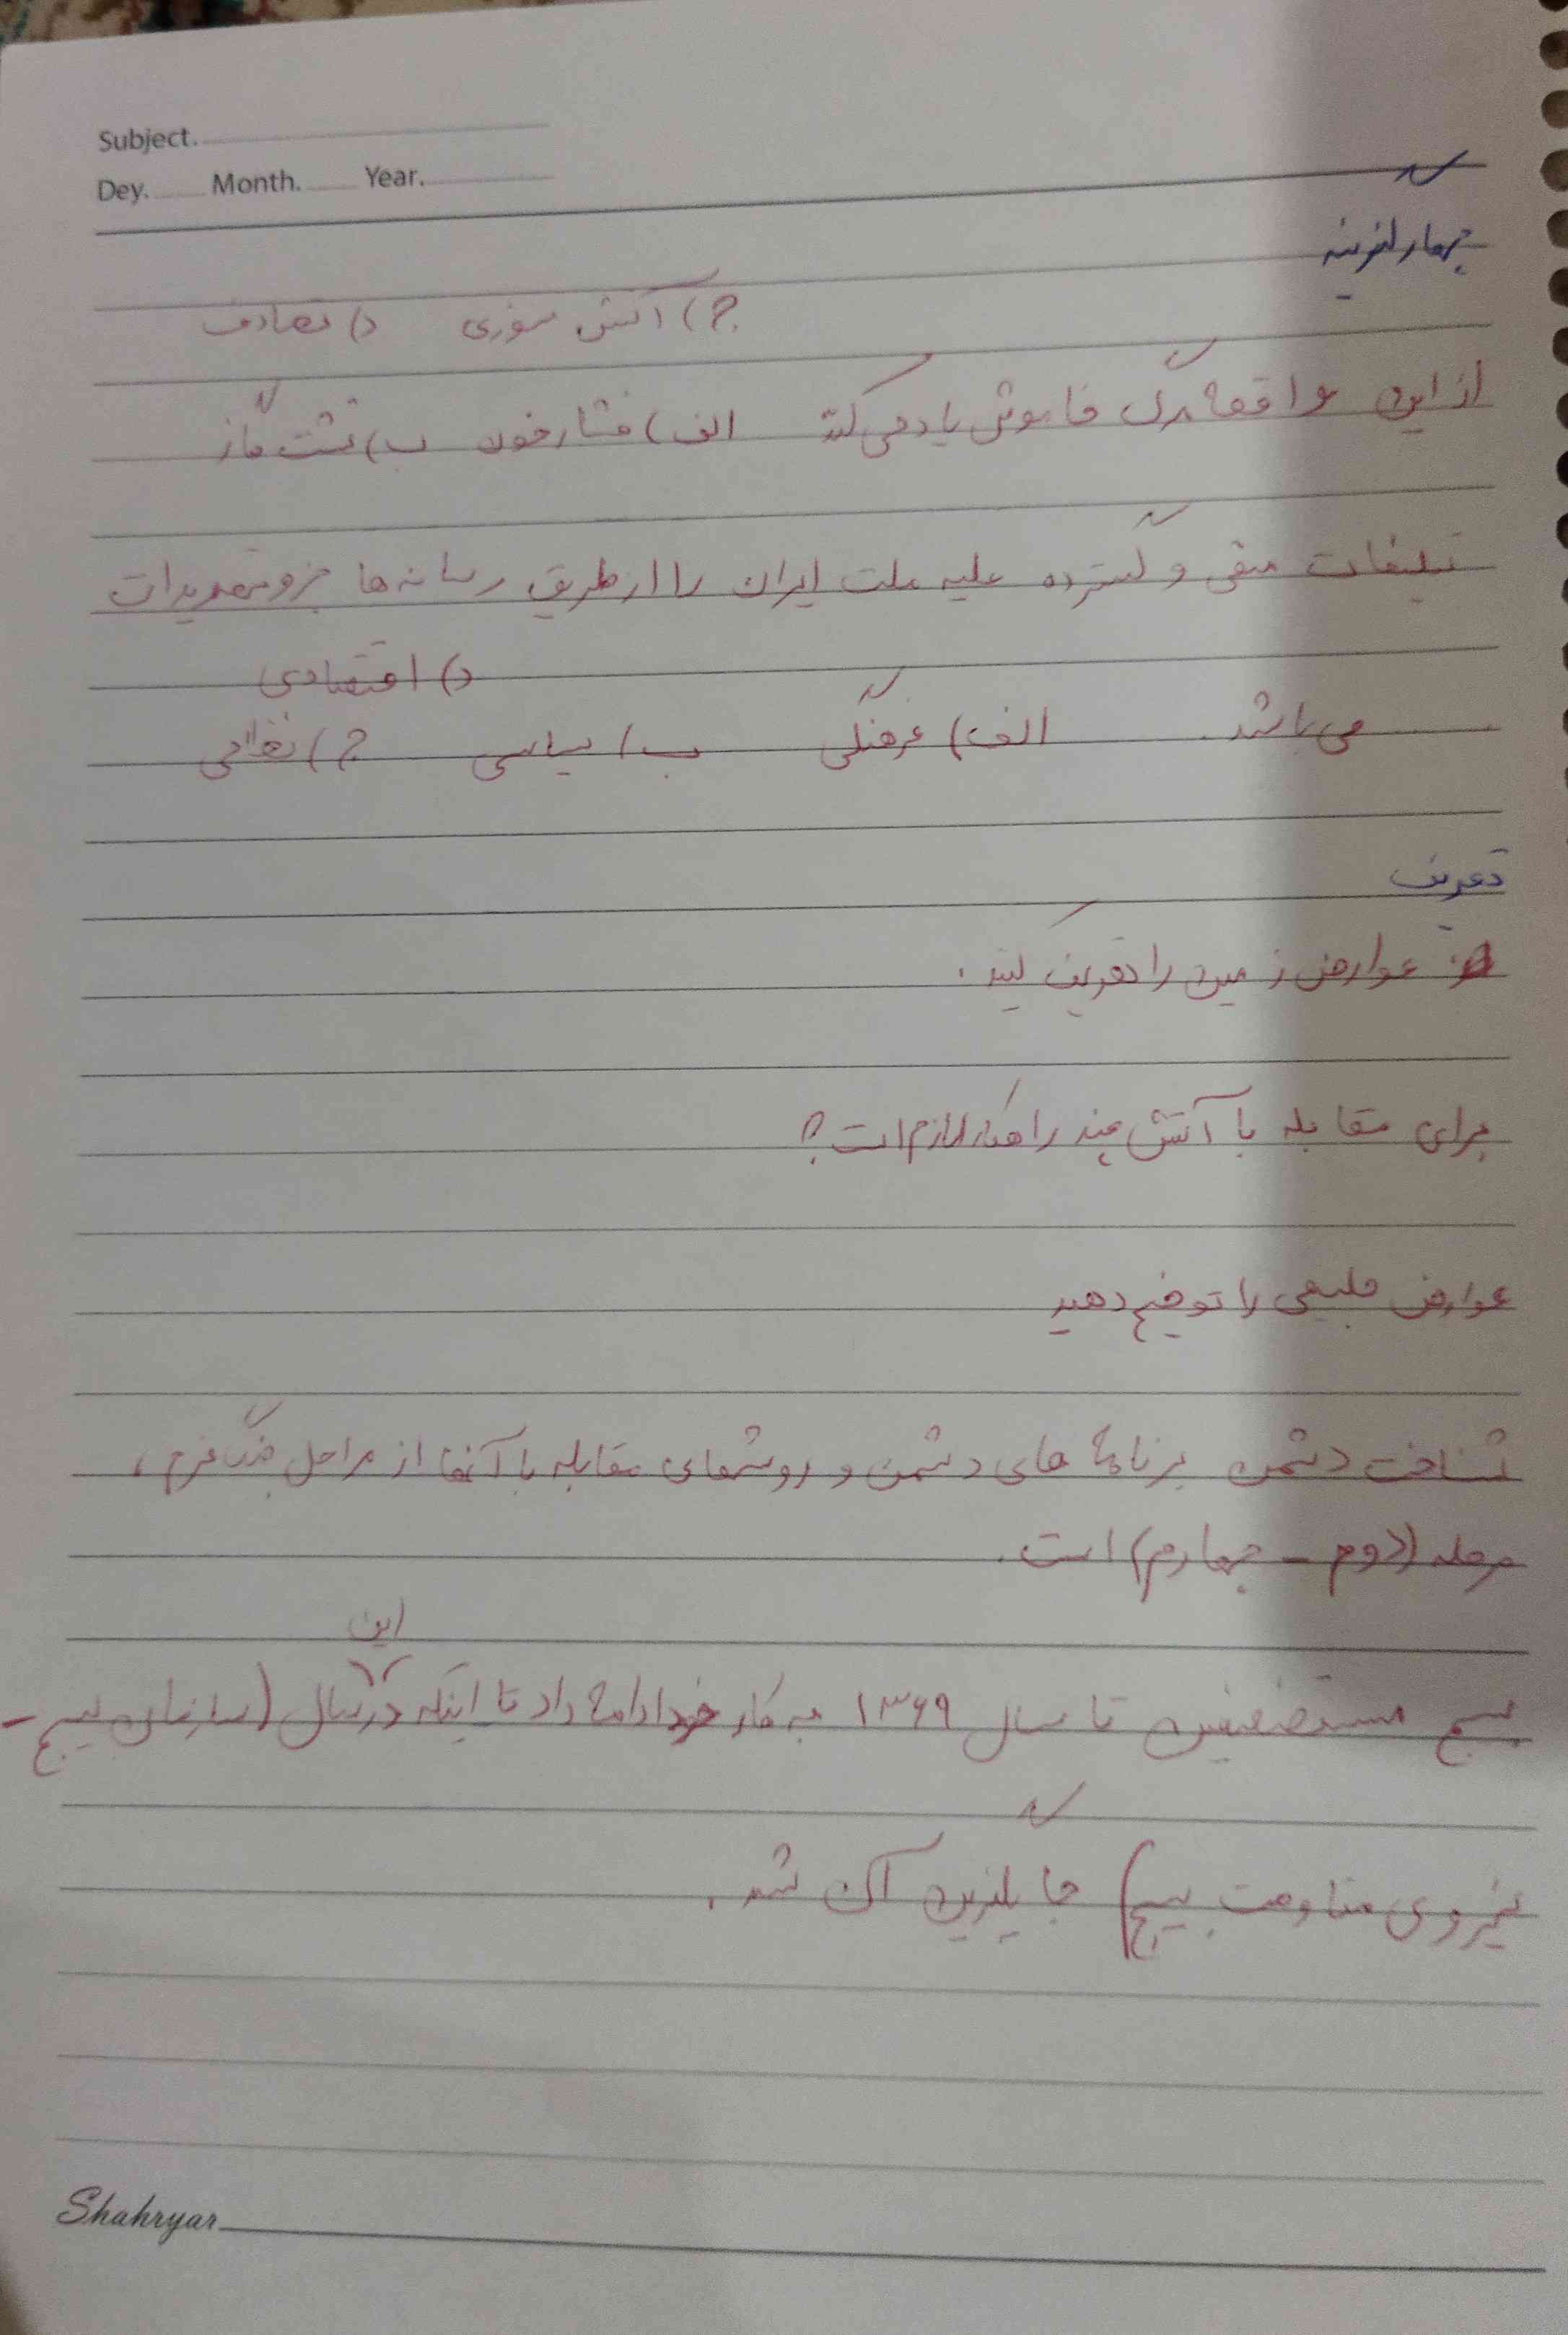 Subject.
Dey. Month. Year.
چهار گزینه
ج) آتش سوزی د) تصادف
از این واقعه مرگ خاموش یاد می کنند الف) فشار خون ب) نشت گاز
تبلیغات منفی و گسترده علیه ملت ایران را از طریق رسانه ها جزو تهدیدات
د) اقتصادی
می باشد. الف) فرهنگی ب) سیاسی ج) نظامی
تعریف
عوارض زمین را تعریف کنید.
برای مقابله با آتش چند راهکار لازم است؟
عوارض طبیعی را توضیح دهید
شناخت دشمن برنامه های دشمن و روشهای مقابله با آنها از مراحل جنگ نرم،
مرحله (دوم - چهارم) است.
این
بسیج مستضعفین تا سال ۱۳۶۹ به کار خود ادامه داد تا اینکه در سال (سازمان بسیج -
نیروی مقاومت بسیج) جایگزین آن شد.
Shahryar